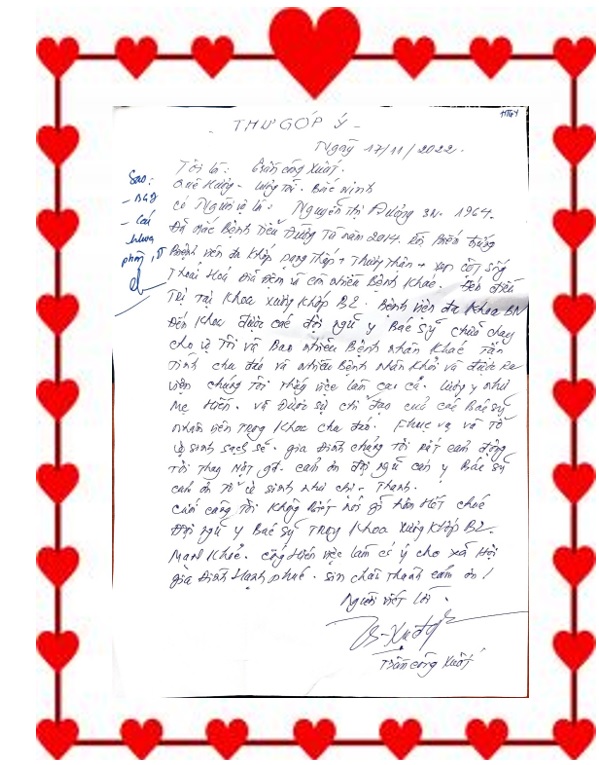 HTGY
- THƯ GÓP Ý -
Ngày 17/11/2022.
Tôi là: Trần công Xuất.
Quê Hương - Lương Tài. Bắc Ninh
Có Người vợ là: Nguyễn Thị Đường SN. 1964.
Đã mắc Bệnh Tiểu Đường Từ năm 2014. Biến trứng
Bệnh viêm đa Khớp Dạng Thấp + Thượng Thận + xẹp cột sống
Thoái Hoá Đĩa Đệm và còn nhiều Bệnh Khác. Đến điều
Trị tại Khoa xương Khớp B2. Bệnh viện đa Khoa BN
Đến Khoa được các đội ngũ y Bác Sỹ chữa chạy
cho vợ Tôi và Bao nhiêu Bệnh nhân Khác Tận
Tình chu đáo và nhiều Bệnh nhân Khỏi và được Ra
viện chúng Tôi thấy việc làm cao cả. Lương y như
Mẹ Hiền. và Được sự chỉ đạo của các Bác sỹ
nhân viên trong Khoa chu đáo. Phục vụ và Tổ
vệ sinh sạch sẽ. gia Đình chúng Tôi Rất cảm động
Tôi thay Mặt gđ. cảm ơn đội ngũ cán y Bác Sỹ
cảm ơn Tổ vệ sinh như chị - Thanh.
Cuối cùng Tôi Không Biết nói gì hơn Hết chúc
Đội ngũ y Bác Sỹ Trong Khoa Xương Khớp B2.
Mạnh Khoẻ. cống Hiến việc làm có ý cho xã Hội
gia Đình Hạnh phúc. sin chân Thành cảm ơn!
Người viết
Trần công Xuất
Sao:
- BGĐ
- Các
khoa
phòng,